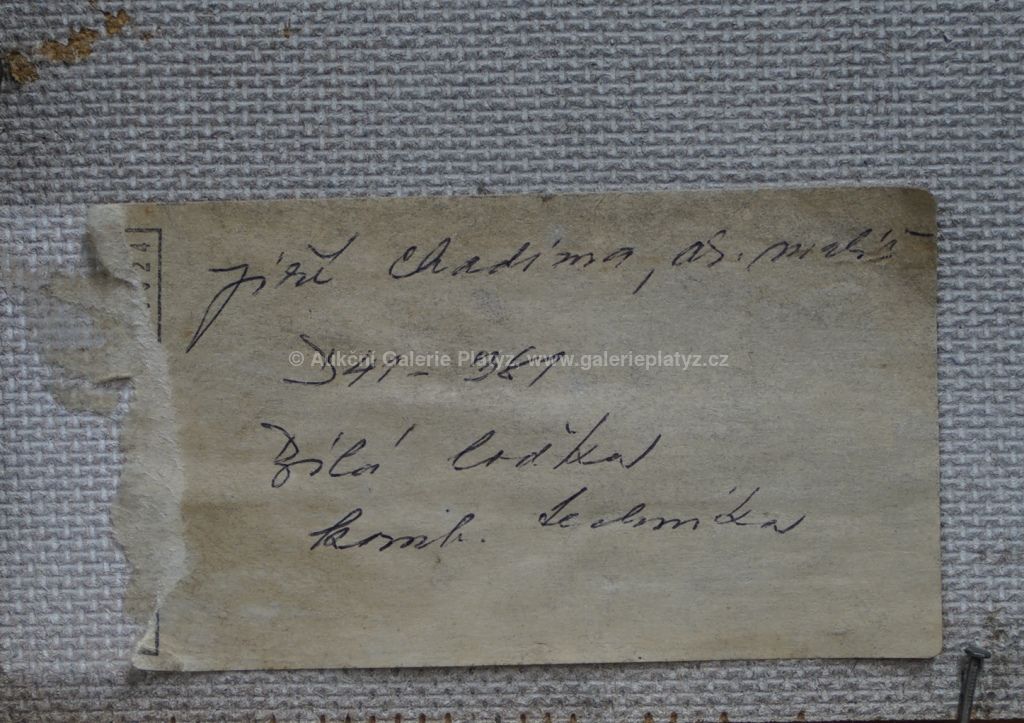 Jiří Chadima, ak. malíř
D41 - 361
Bílá loďka
komb. technika
© Aukční Galerie Platýz, www.galerieplatyz.cz